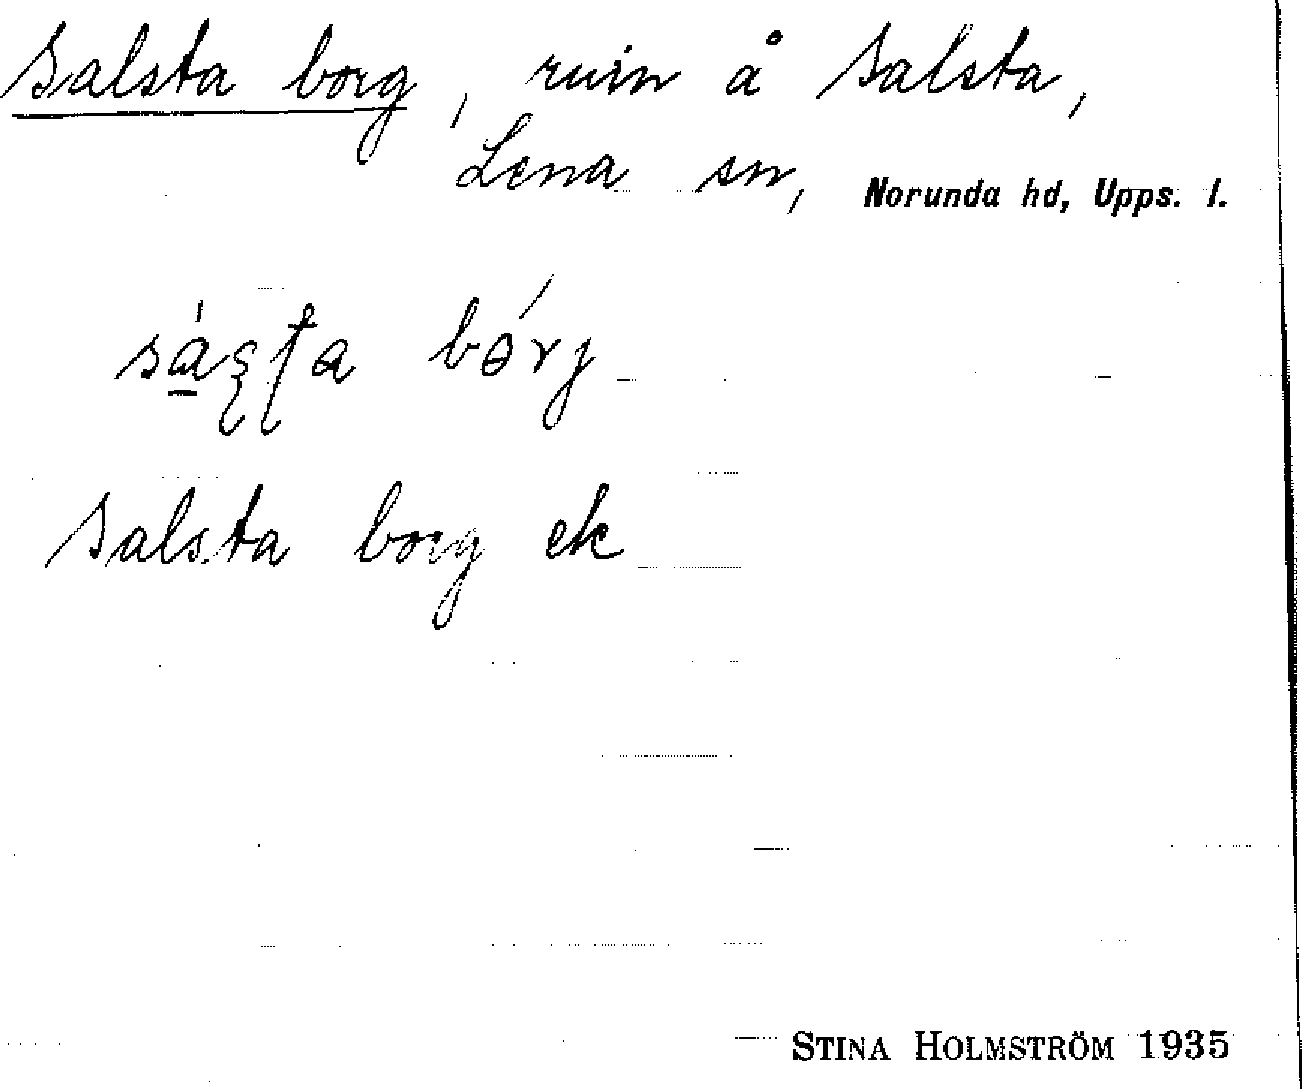 Salsta borg, ruin å Salsta,
Lena sn, Norunda hd, Upps. l.
Salsta borg ek
STINA HOLMSTRÖM 1935